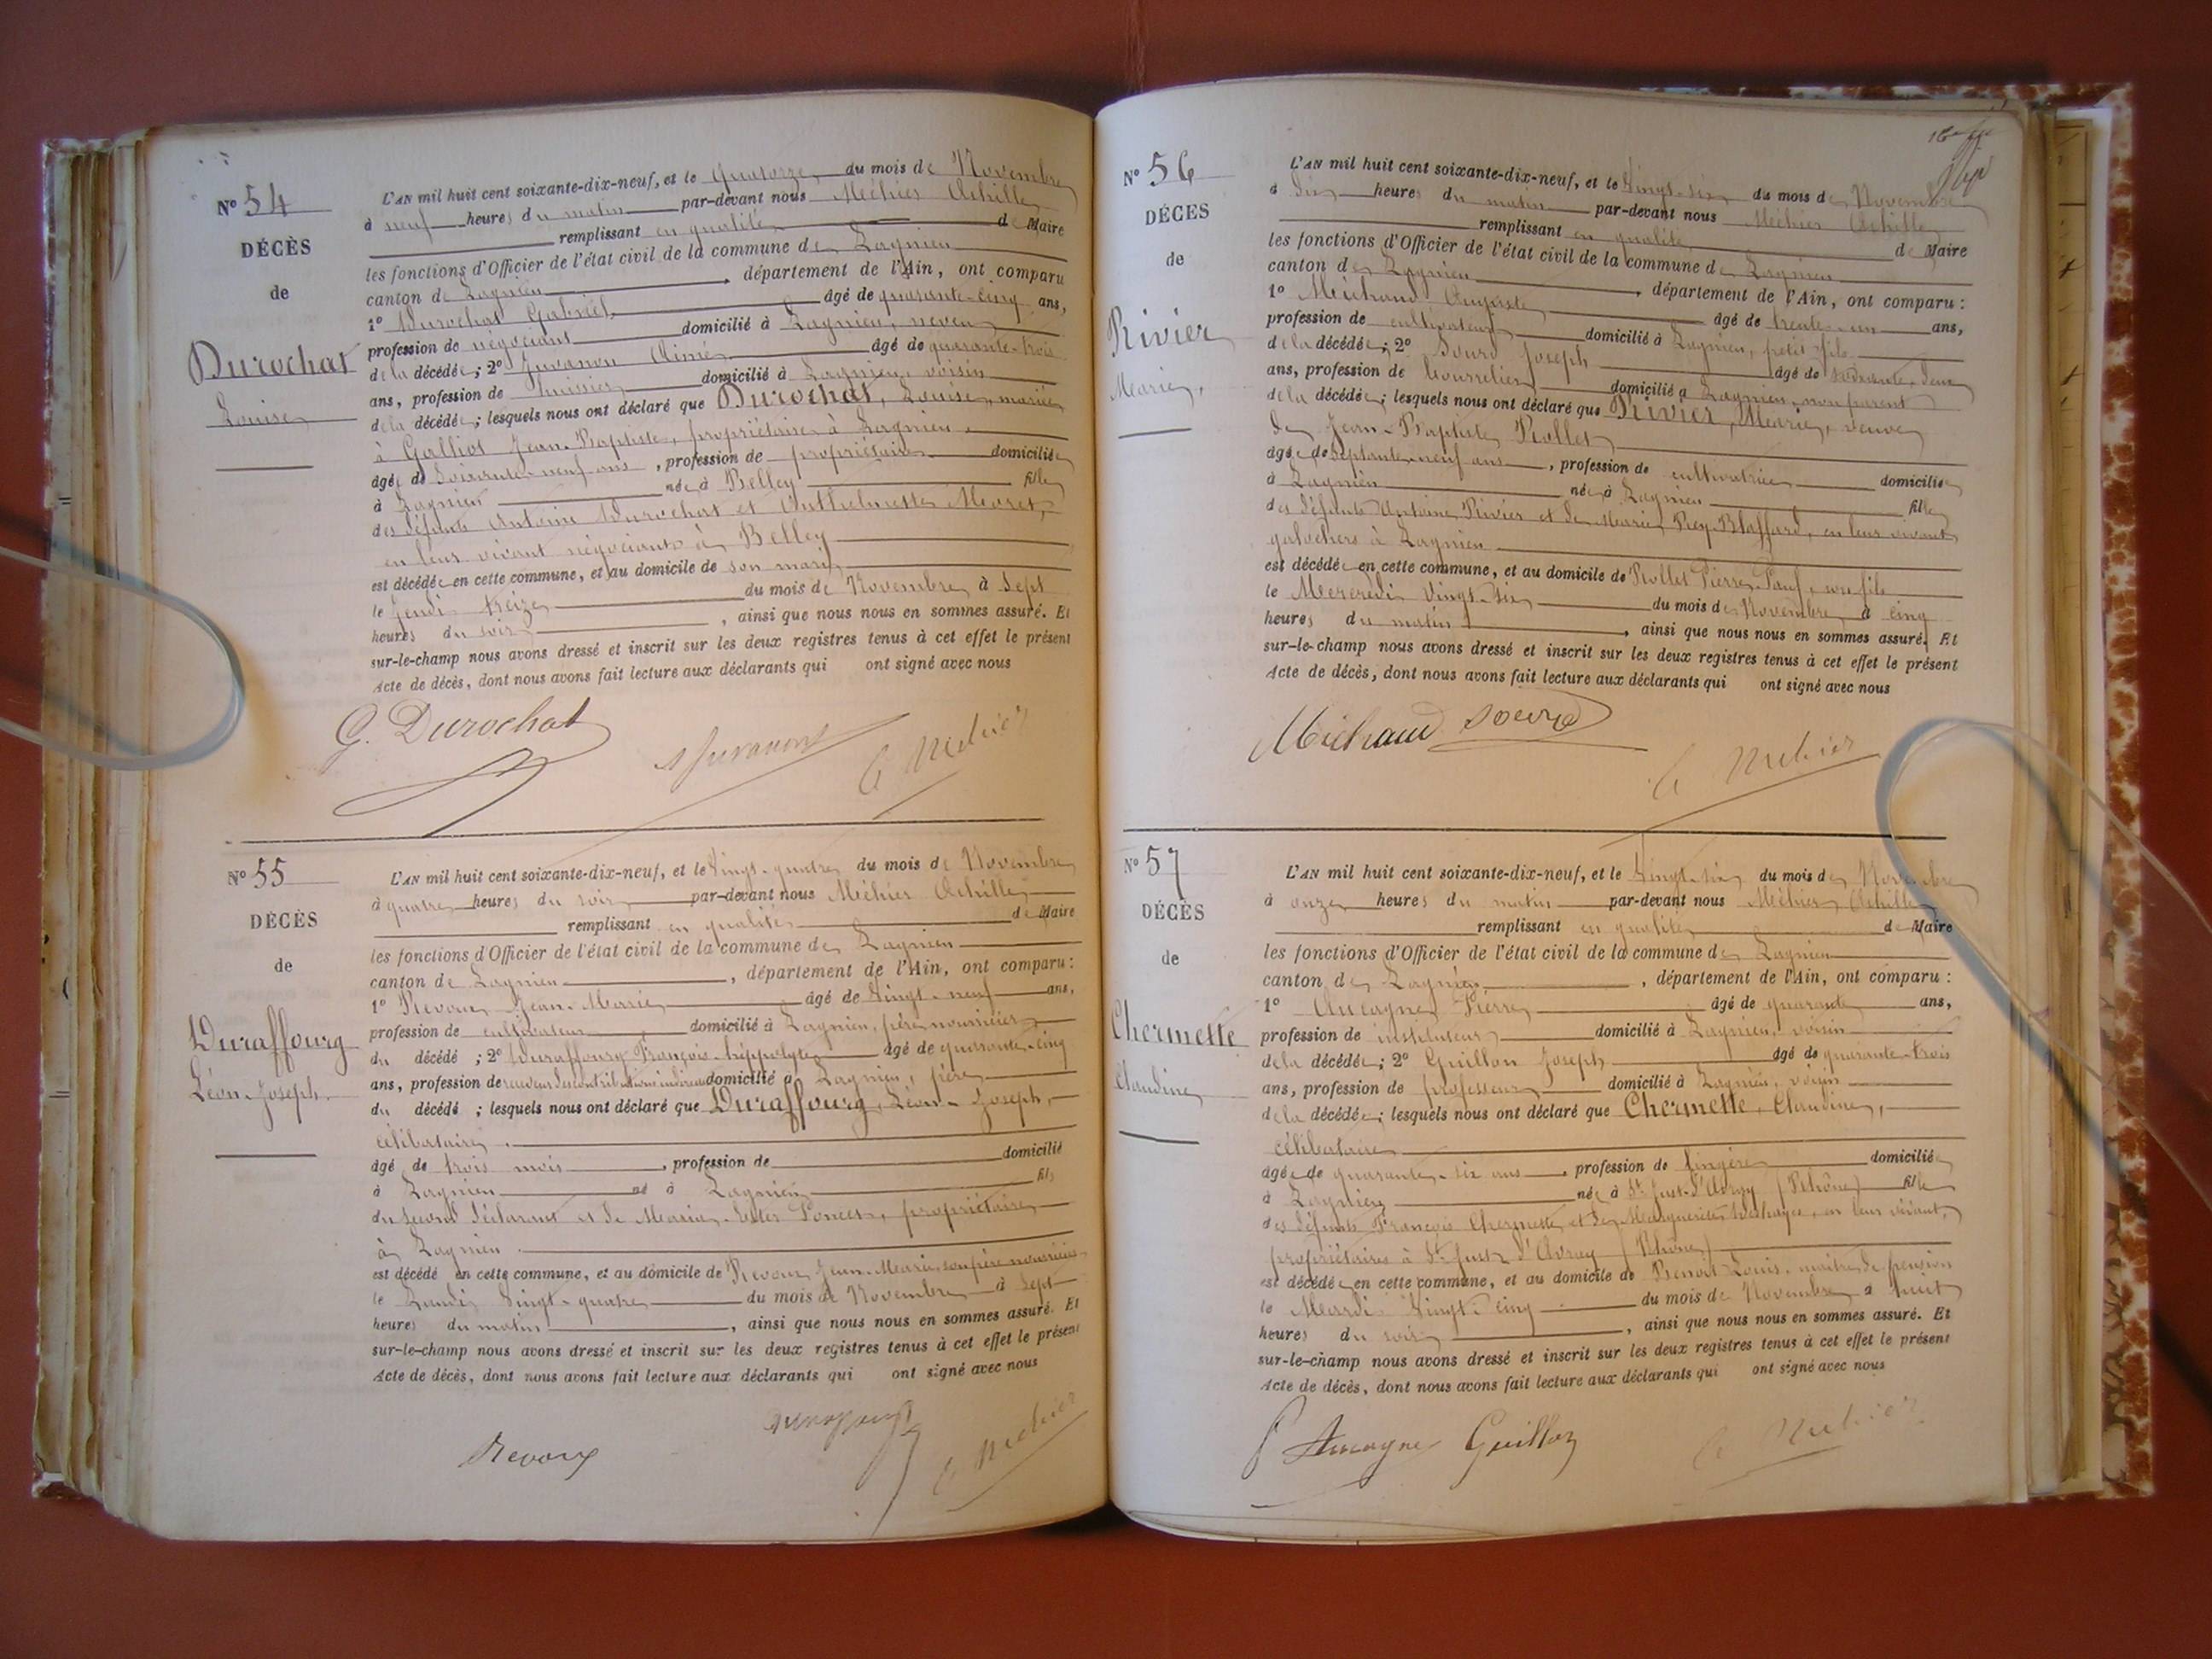 Nº 54
DÉCÈS
de
Durochat
Louise
L'AN mil huit cent soixante-dix-neuf, et le Quatorze du mois de Novembre
à neuf heures du matin par-devant nous Méhier Achille
remplissant en qualité de Maire
les fonctions d'Officier de l'état civil de la commune de Lagnieu
canton de Lagnieu, département de l'Ain, ont comparu
1º Durochat Gabriel âgé de quarante-cinq ans,
profession de négociant domicilié à Lagnieu, neveu
de la décédée; 2º Juvanon Aimé âgé de quarante-trois
ans, profession de huissier domicilié à Lagnieu, voisin
de la décédée; lesquels nous ont déclaré que Durochat, Louise, mariée
à Galliot Jean-Baptiste, propriétaire à Lagnieu
âgée de Soixante-neuf ans, profession de propriétaire domiciliée
à Lagnieu née à Belley fille
des défunts Antoine Durochat et Anthelmette Moret,
en leur vivant négociants à Belley
est décédée en cette commune, et au domicile de son mari
le Jeudi treize du mois de Novembre à Sept
heures du soir, ainsi que nous nous en sommes assuré. Et
sur-le-champ nous avons dressé et inscrit sur les deux registres tenus à cet effet le présent
Acte de décès, dont nous avons fait lecture aux déclarants qui ont signé avec nous
G. Durochat A Juvanon A Mehier
Nº 55
DÉCÈS
de
Duraffourg
Léon-Joseph
L'AN mil huit cent soixante-dix-neuf, et le Vingt-quatre du mois de Novembre
à quatre heures du soir par-devant nous Méhier Achille
remplissant en qualité de Maire
les fonctions d'Officier de l'état civil de la commune de Lagnieu
canton de Lagnieu, département de l'Ain, ont comparu:
1º Revoux Jean-Marie âgé de Vingt-neuf ans,
profession de cultivateur domicilié à Lagnieu, père nourricier
du décédé; 2º Duraffourg François-hippolyte âgé de quarante-cinq
ans, profession de receveur des contributions indirectes domicilié à Lagnieu, père
du décédé; lesquels nous ont déclaré que Duraffourg, Léon-Joseph,
célibataire,
âgé de trois mois, profession de domicilié
à Lagnieu né à Lagnieu fils
du second déclarant et de Marie Poncet, propriétaire
à Lagnieu.
est décédé en cette commune, et au domicile de Revoux Jean-Marie, son père nourricier
le Lundi Vingt-quatre du mois de Novembre à Sept
heures du matin, ainsi que nous nous en sommes assuré. Et
sur-le-champ nous avons dressé et inscrit sur les deux registres tenus à cet effet le présent
Acte de décès, dont nous avons fait lecture aux déclarants qui ont signé avec nous
Revoux Duraffourg A Mehier
Nº 56
DÉCÈS
de
Rivier
Marie,
L'AN mil huit cent soixante-dix-neuf, et le Vingt-six du mois de Novembre
à dix heures du matin par-devant nous Méhier Achille
remplissant en qualité de Maire
les fonctions d'Officier de l'état civil de la commune de Lagnieu
canton de Lagnieu, département de l'Ain, ont comparu:
1º Michaud Auguste âgé de trente-un ans,
profession de cultivateur domicilié à Lagnieu, petit-fils
de la décédée; 2º Sourd Joseph âgé de soixante-deux
ans, profession de bourrelier domicilié à Lagnieu, non parent
de la décédée; lesquels nous ont déclaré que Rivier, Marie, veuve
de Jean-Baptiste Rollet
âgée de Septante-neuf ans, profession de cultivatrice domiciliée
à Lagnieu née à Lagnieu fille
des défunts Antoine Rivier et de Marie Rey-Blaffard, en leur vivant
galochers à Lagnieu
est décédée en cette commune, et au domicile de Rollet Pierre-Paul, son fils
le Mercredi Vingt-six du mois de Novembre à cinq
heures du matin, ainsi que nous nous en sommes assuré. Et
sur-le-champ nous avons dressé et inscrit sur les deux registres tenus à cet effet le présent
Acte de décès, dont nous avons fait lecture aux déclarants qui ont signé avec nous
Michaud Sourd A Mehier
Nº 57
DÉCÈS
de
Chermette
Claudine
L'AN mil huit cent soixante-dix-neuf, et le Vingt-six du mois de Novembre
à onze heures du matin par-devant nous Méhier Achille
remplissant en qualité de Maire
les fonctions d'Officier de l'état civil de la commune de Lagnieu
canton de Lagnieu, département de l'Ain, ont comparu:
1º Aucagne Pierre âgé de quarante ans,
profession de instituteur domicilié à Lagnieu, voisin
de la décédée; 2º Guillon Joseph âgé de quarante-trois
ans, profession de professeur domicilié à Lagnieu, voisin
de la décédée; lesquels nous ont déclaré que Chermette, Claudine,
célibataire
âgée de quarante-six ans, profession de lingère domiciliée
à Lagnieu née à St Just-d'Avray (Rhône) fille
des défunts François Chermette et de Marguerite, en leur vivant,
propriétaires à St Just d'Avray (Rhône)
est décédée en cette commune, et au domicile de Benoit Louis, maître de pension
le Mardi Vingt-cinq du mois de Novembre à huit
heures du soir, ainsi que nous nous en sommes assuré. Et
sur-le-champ nous avons dressé et inscrit sur les deux registres tenus à cet effet le présent
Acte de décès, dont nous avons fait lecture aux déclarants qui ont signé avec nous
P Aucagne Guillon A Mehier